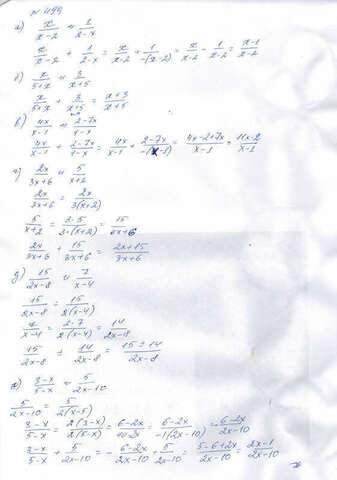 № 499
а) x/(x-2) и 1/(2-x)
x/(x-2) + 1/(2-x) = x/(x-2) + 1/(-(x-2)) = x/(x-2) - 1/(x-2) = (x-1)/(x-2)
б) x/(5+x) и 3/(x+5)
x/(5+x) + 3/(x+5) = (x+3)/(x+5)
в) 4x/(x-1) и (2-7x)/(1-x)
4x/(x-1) + (2-7x)/(1-x) = 4x/(x-1) + (2-7x)/(-(x-1)) = (4x-2+7x)/(x-1) = (11x-2)/(x-1)
г) 2x/(3x+6) и 5/(x+2)
2x/(3x+6) = 2x/(3(x+2))
5/(x+2) = (3·5)/(3·(x+2)) = 15/(3x+6)
2x/(3x+6) + 15/(3x+6) = (2x+15)/(3x+6)
д) 15/(2x-8) и 7/(x-4)
15/(2x-8) = 15/(2(x-4))
7/(x-4) = (2·7)/(2(x-4)) = 14/(2x-8)
15/(2x-8) ± 14/(2x-8) = (15±14)/(2x-8)
е) (3-x)/(5-x) и 5/(2x-10)
5/(2x-10) = 5/(2(x-5))
(3-x)/(5-x) = 2(3-x)/(2(5-x)) = (6-2x)/(10-2x) = (6-2x)/(-1(2x-10)) = -(6-2x)/(2x-10)
(3-x)/(5-x) + 5/(2x-10) = -(6-2x)/(2x-10) + 5/(2x-10) = (5-6+2x)/(2x-10) = (2x-1)/(2x-10)